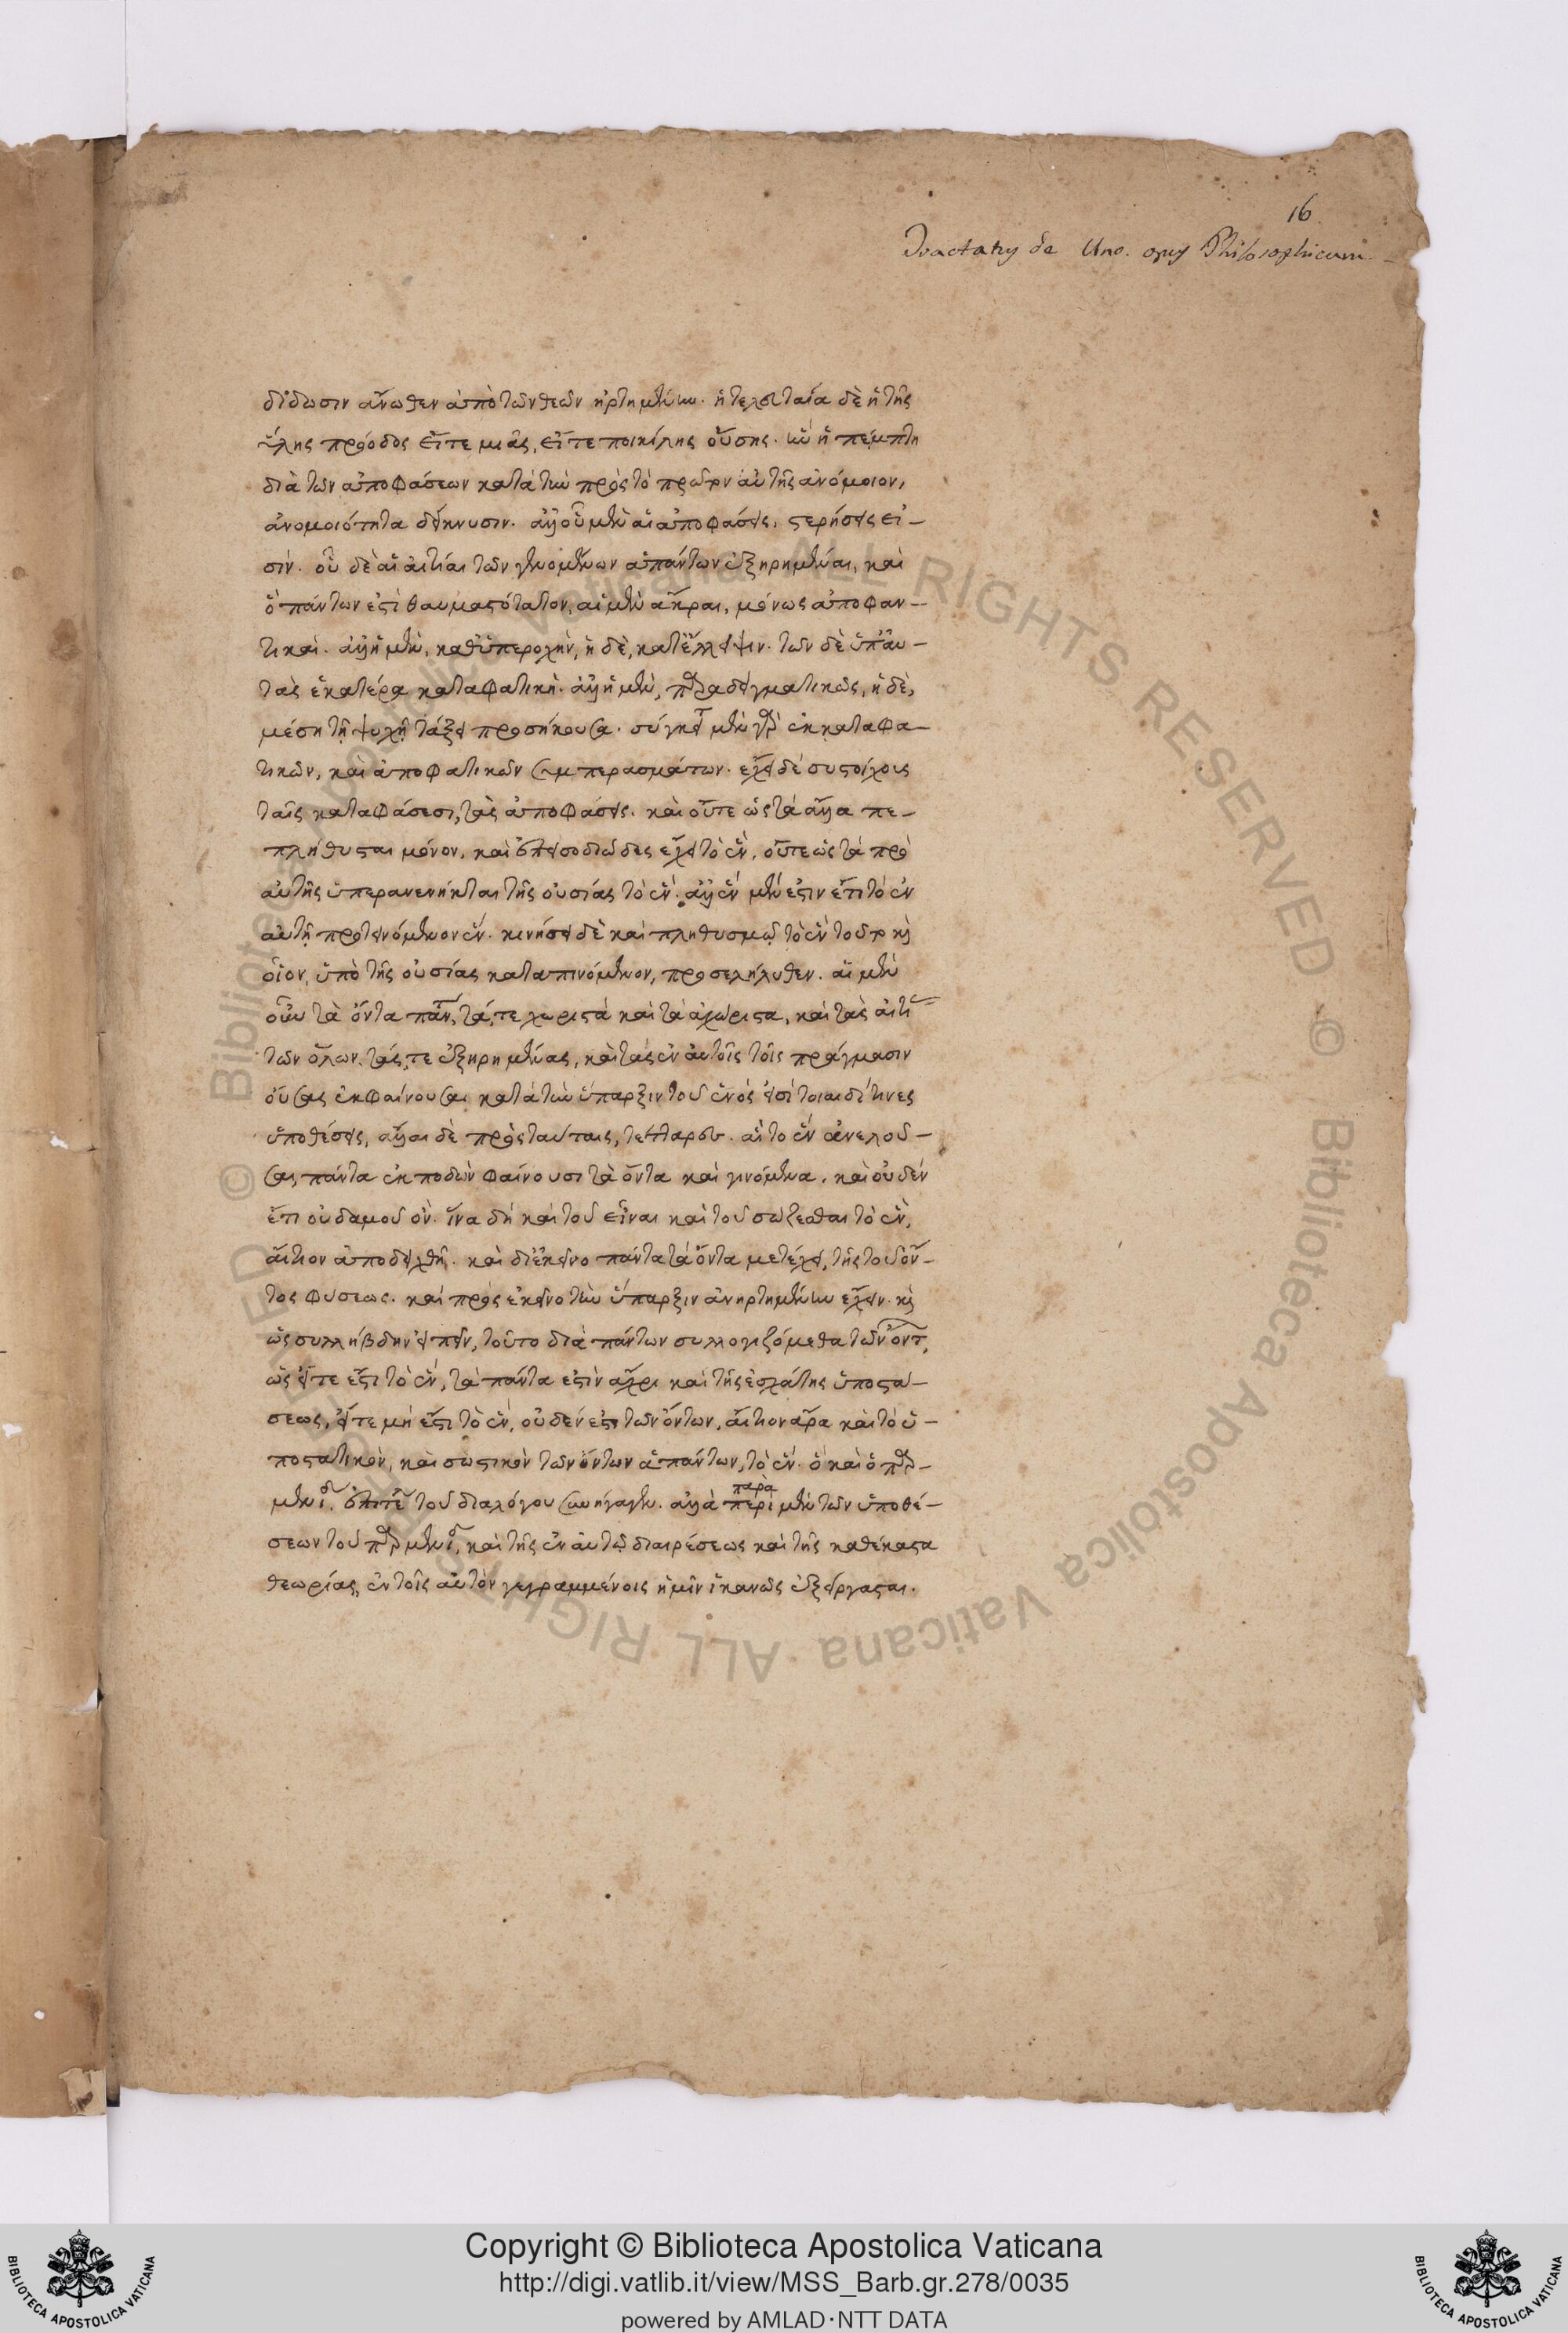 16
Tractatus de Uno. opus Philosophicum
δίδωσιν ἄνωθεν ἀπὸ τῶν θεῶν ἠρτημένην. ἡ τελευταία δὲ ἡ τῆς
ὕλης πρόοδος εἴτε μιᾶς, εἴτε ποικίλης οὔσης. ἣν ἡ πέμπτη
διὰ τῶν ἀποφάσεων κατὰ τὴν πρὸς τὸ πρῶτον αὐτῆς ἀνόμοιον,
ἀνομοιότητα δείκνυσιν. ἀλλ' οὗ μὲν αἱ ἀποφάσεις, στερήσεις εἰ-
σίν. οὗ δὲ αἱ αἰτίαι τῶν γενομένων ἁπάντων ἐξῃρημέναι, καὶ
ὃ πάντων ἐστὶ θαυμαστότατον, αἱ μὲν ἄκραι, μόνως ἀποφαν-
τικαί. ἀλλ' ἡ μὲν, καθ' ὑπεροχὴν, ἡ δὲ, κατ' ἔλλειψιν. τῶν δὲ ὑπ' αὐ-
τὰς ἑκατέρα καταφατική. ἀλλ' ἡ μὲν, παραδειγματικῶς, ἡ δὲ,
μέση τῇ ψυχῇ τάξει προσήκουσα. σύγκειται μὲν γὰρ ἐκ καταφα-
τικῶν, καὶ ἀποφατικῶν συμπερασμάτων. ἔχει δὲ συστοίχοις
ταῖς καταφάσεσι, τὰς ἀποφάσεις. καὶ οὔτε ὡς τὰ ἄλλα πε-
πλήθυσται μόνον, καὶ ἐπεισοδιώδες ἔχει τὸ ἕν, οὔτε ὡς τὰ πρὸ
αὐτῆς ὑπερανενήκται τῆς οὐσίας τὸ ἕν. ἀλλ' ἓν μέν ἐστιν ἔτι τὸ ἐν
αὐτῇ προτεινόμενον ἕν. κινήσει δὲ καὶ πληθυσμῷ τὸ ἓν τοῦτο καὶ
οἷον, ὑπὸ τῆς οὐσίας καταπινόμενον, προσελήλυθεν. αἱ μὲν
οὖν τὰ ὄντα πάντα, τά, τε χωριστὰ καὶ τὰ ἀχώριστα, καὶ τὰς αἰτίας
τῶν ὅλων, τάς, τε ἐξῃρημένας, καὶ τὰς ἐν αὐτοῖς τοῖς πράγμασιν
οὔσας ἐκφαίνουσαι κατὰ τὴν ὕπαρξιν τοῦ ἑνός εἰσὶ τοιαίδέ τινες
ὑποθέσεις, ἄλλαι δὲ πρὸς ταύταις, τέτταρες. αἳ τὸ ἓν ἀνελοῦ-
σαι, πάντα ἐκποδὼν φαίνουσι τὰ ὄντα καὶ γινόμενα. καὶ οὐδέν
ἔτι οὐδαμοῦ ὄν. ἵνα δὴ καὶ τοῦ εἶναι καὶ τοῦ σώζεσθαι τὸ ἓν,
αἴτιον ἀποδειχθῇ. καὶ δι' ἐκεῖνο πάντα τὰ ὄντα μετέχει, τῆς τοῦ ὄν-
τος φύσεως. καὶ πρὸς ἐκεῖνο τὴν ὕπαρξιν ἀνηρτημένην ἔχειν. καὶ
ὡς συλλήβδην εἰπεῖν, τοῦτο διὰ πάντων συλλογιζόμεθα τῶν ὄντων,
ὡς εἴτε ἔστι τὸ ἕν, τὰ πάντα ἐστὶν ἄχρι καὶ τῆς ἐσχάτης ὑποστά-
σεως, εἴτε μὴ ἔστι τὸ ἕν, οὐδέν ἐστι τῶν ὄντων. αἴτιον ἄρα καὶ τὸ ὑ-
ποστατικὸν, καὶ σωστικὸν τῶν ὄντων ἁπάντων, τὸ ἕν. ὃ καὶ ὁ παρ-
μενίδης ἐπὶ τέλει τοῦ διαλόγου συνήγαγεν. ἀλλὰ περὶ μὲν τῶν ὑποθέ-
παρὰ
σεων τοῦ παρμενίδου, καὶ τῆς ἐν αὐτῷ διαιρέσεως καὶ τῆς καθέκαστα
θεωρίας, ἐν τοῖς αὐτὸν γεγραμμένοις ἡμῖν ἱκανῶς ἐξείργασται.
Copyright © Biblioteca Apostolica Vaticana
http://digi.vatlib.it/view/MSS_Barb.gr.278/0035
powered by AMLAD·NTT DATA